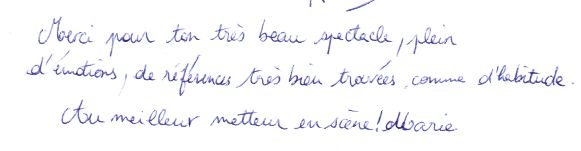 Merci pour ton très beau spectacle, plein
d'émotions, de références très bien trouvées, comme d'habitude.
Au meilleur metteur en scène! Marie